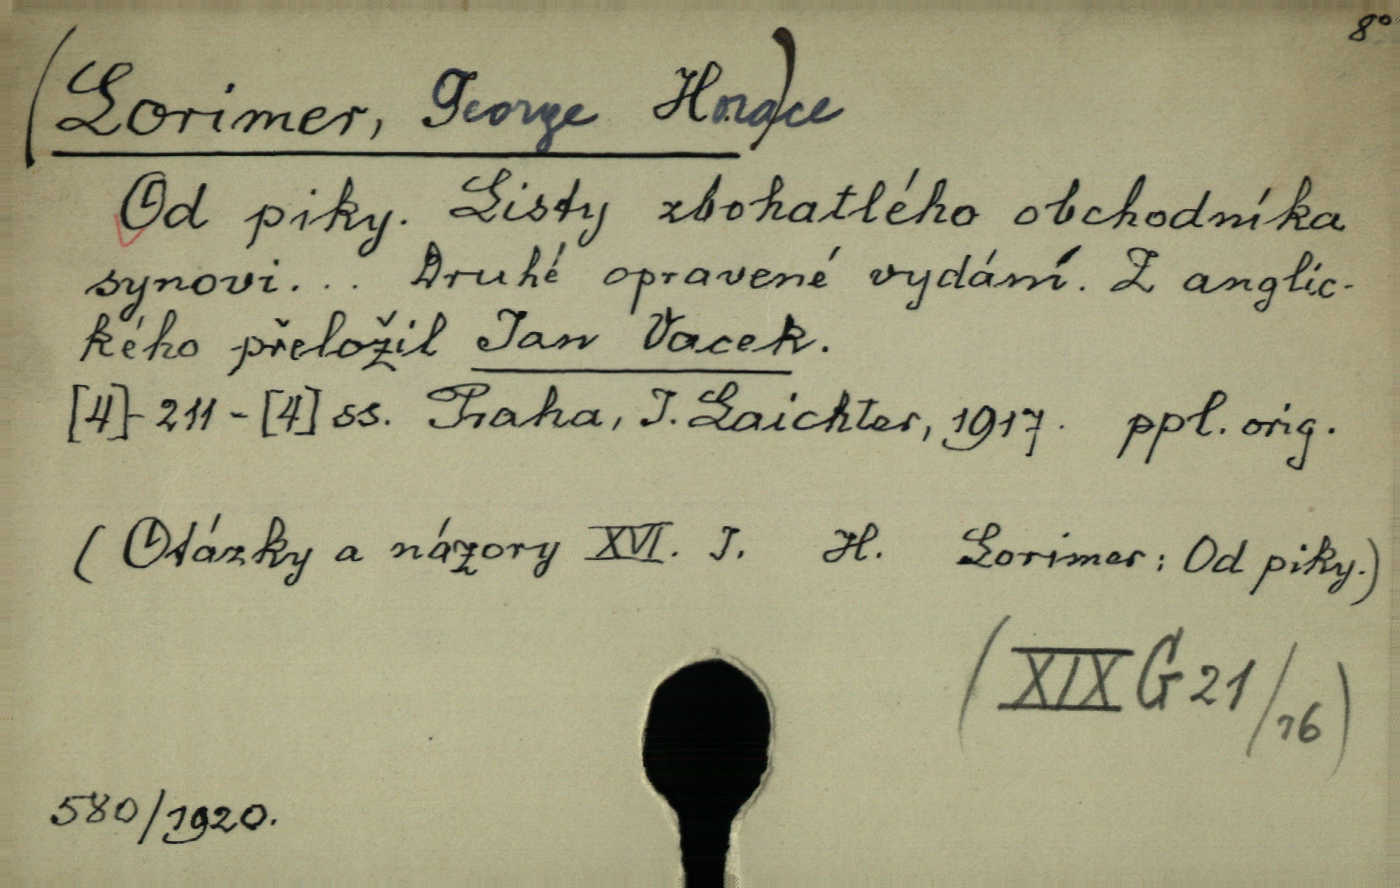 8°
(Lorimer, George Horace)
Od piky. Listy zbohatlého obchodníka
synovi... Druhé opravené vydání. Z anglic-
kého přeložil Jan Vacek.
[4]-211-[4] ss. Praha, J. Laichter, 1917. ppl. orig.
(Otázky a názory XVI. J. H. Lorimer: Od piky.)
(XIX G 21/16)
580/1920.